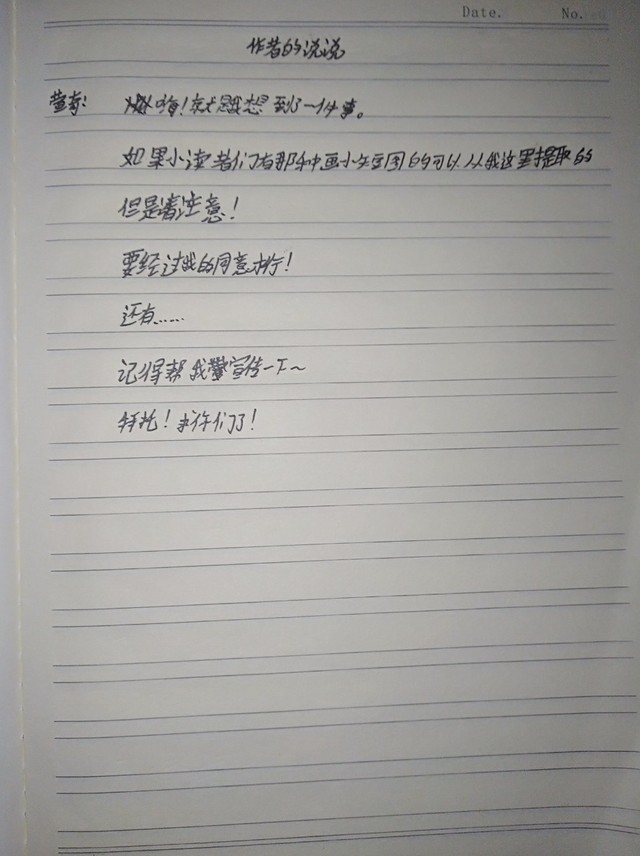 Date. No.
作者的说说
嗨！就是我想到了一件事。
如果小读者们有那种画小矢豆图的可以从我这里提取的
但是请注意！
要经过我的同意才行！
还有……
记得帮我宣传一下～
拜托！求你们了！